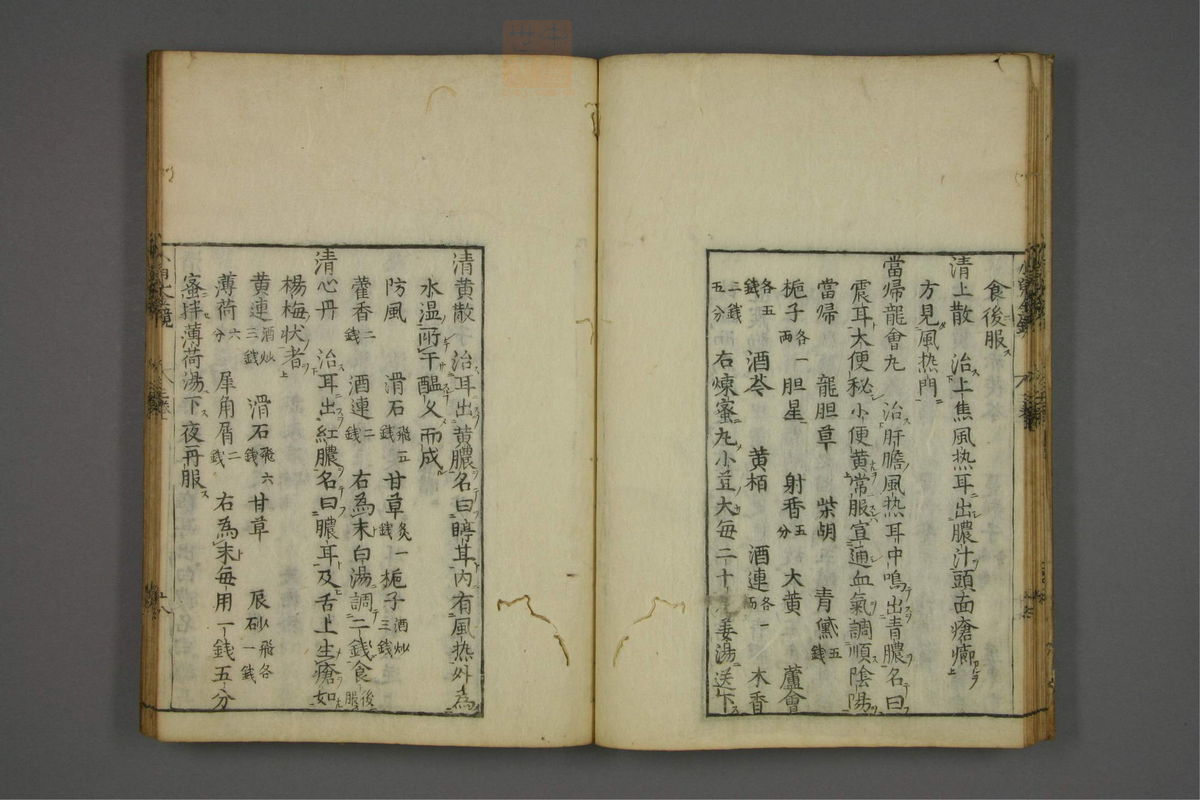 食後服
清上散 治上焦風热耳出膿汁頭面瘡癤
方見風热門
當帰龍會丸 治肝膽風熱耳中鳴出青膿名曰
震耳大便秘小便黄常服宣通血氣調順陰陽
當帰 龍胆草 柴胡 青黛五錢
梔子各一両 胆星 射香五分 大黄 蘆會
各五錢 酒芩 黄栢 酒連各一両 木香
二錢五分 右煉蜜丸小豆大每二十 姜湯送下
清黄散 治耳出黄膿名曰聤耳内有風热外為
水温所干醞久而成
防風 滑石飛五錢 甘草炙一錢 梔子酒炒三錢
藿香二錢 酒連二錢 右為末白湯調二錢食後服
清心丹 治耳出紅膿名曰膿耳及舌上生瘡如
楊梅状者
黄連酒炒三錢 滑石飛六錢 甘草 辰砂飛各一錢
薄荷六分 犀角屑二錢 右為末每用一錢五分
蜜拌薄荷湯下夜再服